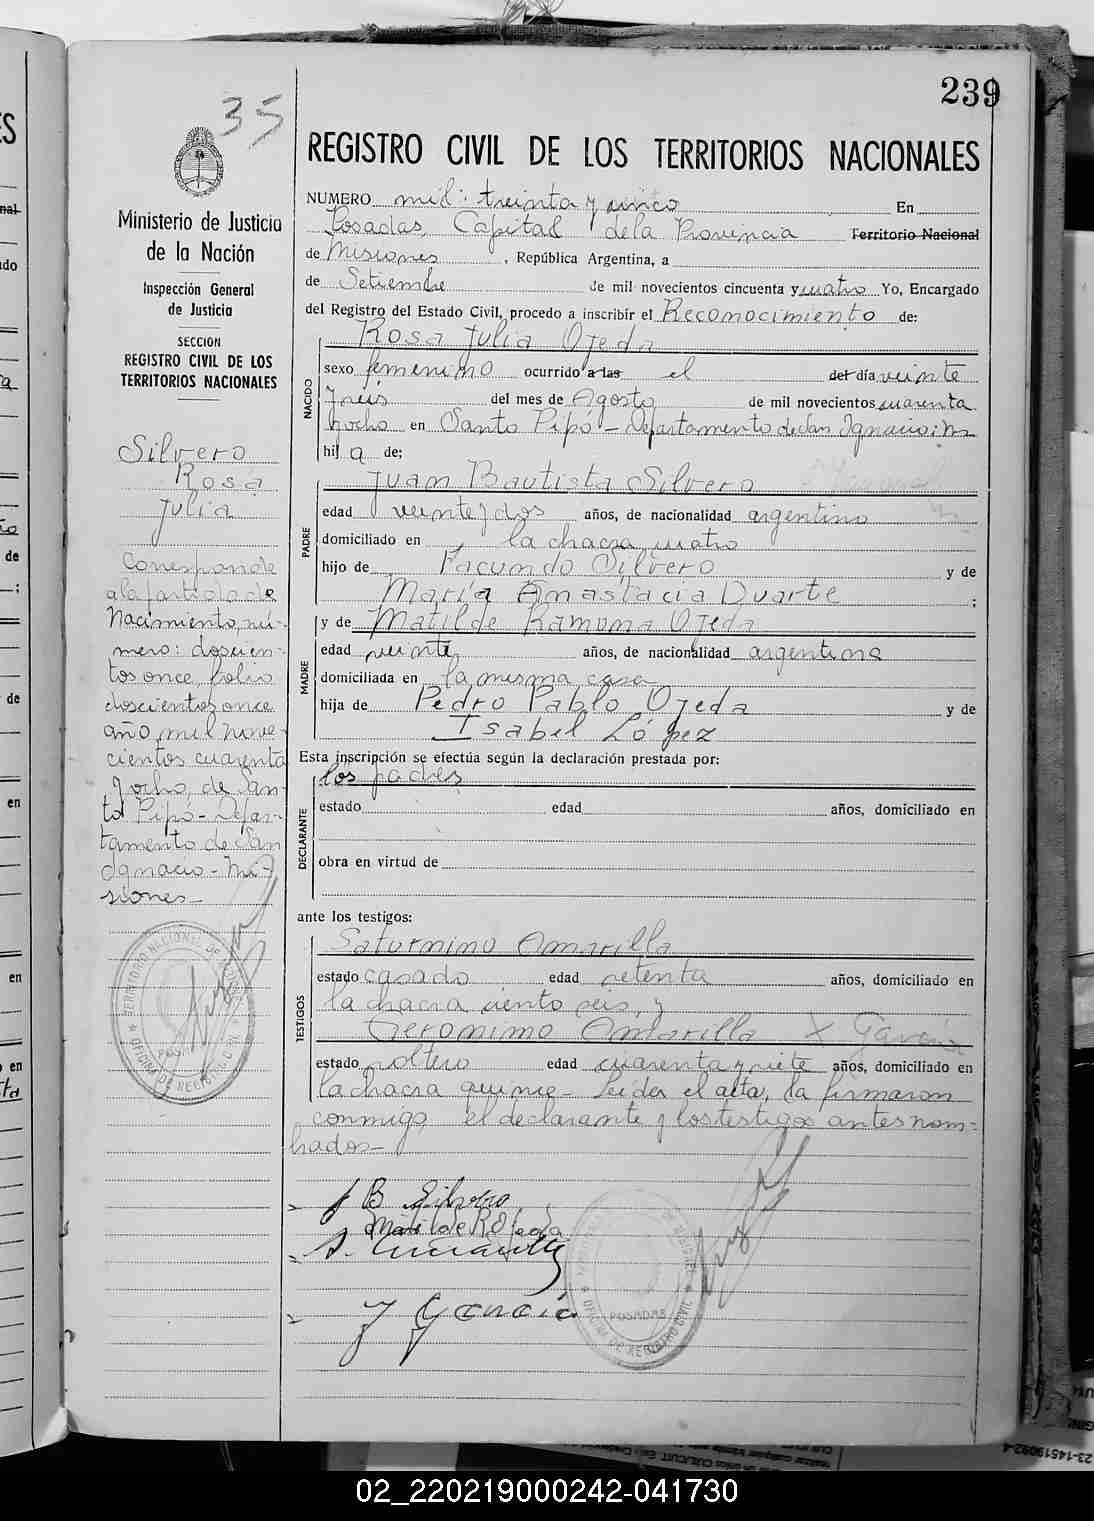 239
35
REGISTRO CIVIL DE LOS TERRITORIOS NACIONALES
Ministerio de Justicia
de la Nación
Inspección General
de Justicia
SECCION
REGISTRO CIVIL DE LOS
TERRITORIOS NACIONALES
Silvero
Rosa
Julia
Corresponde
a la partida de
Nacimiento, nú-
mero: doscien-
tos once, folio
doscientos once
año mil nove-
cientos cuarenta
y ocho, de San-
to Pipó - Depar-
tamento de San
Ignacio - Mi-
siones -
NUMERO mil: treinta y cinco En
Posadas, Capital de la Provincia Territorio Nacional
de Misiones, República Argentina, a
de Setiembre de mil novecientos cincuenta y cuatro Yo, Encargado
del Registro del Estado Civil, procedo a inscribir el Reconocimiento de:
Rosa Julia Ojeda
NACIDO
sexo femenino ocurrido a las el del día veinte
y tres del mes de Agosto de mil novecientos cuarenta
y ocho en Santo Pipó - Departamento de San Ignacio: Ms
hij a de;
PADRE
Juan Bautista Silvero
edad veinte y dos años, de nacionalidad argentino
domiciliado en la chacra cuatro
hijo de Facundo Silvero y de
María Anastacia Duarte ;
MADRE
y de Matilde Ramona Ojeda
edad veinte años, de nacionalidad argentina
domiciliada en la misma casa
hija de Pedro Pablo Ojeda y de
Isabel López
Esta inscripción se efectúa según la declaración prestada por:
DECLARANTE
los padres
estado edad años, domiciliado en
obra en virtud de
ante los testigos:
TESTIGOS
Saturnino Amarilla
estado casado edad setenta años, domiciliado en
la chacra ciento seis, y
Geronimo Amarilla X García
estado soltero edad cuarenta y siete años, domiciliado en
la chacra quince - Leída el acta, la firmaron
conmigo, el declarante y los testigos antes nom-
brados -
J B Silvero
Matilde R Ojeda
S. Amarilla
J García
POSADAS
OFICINA DE REGISTRO CIVIL
02_220219000242-041730